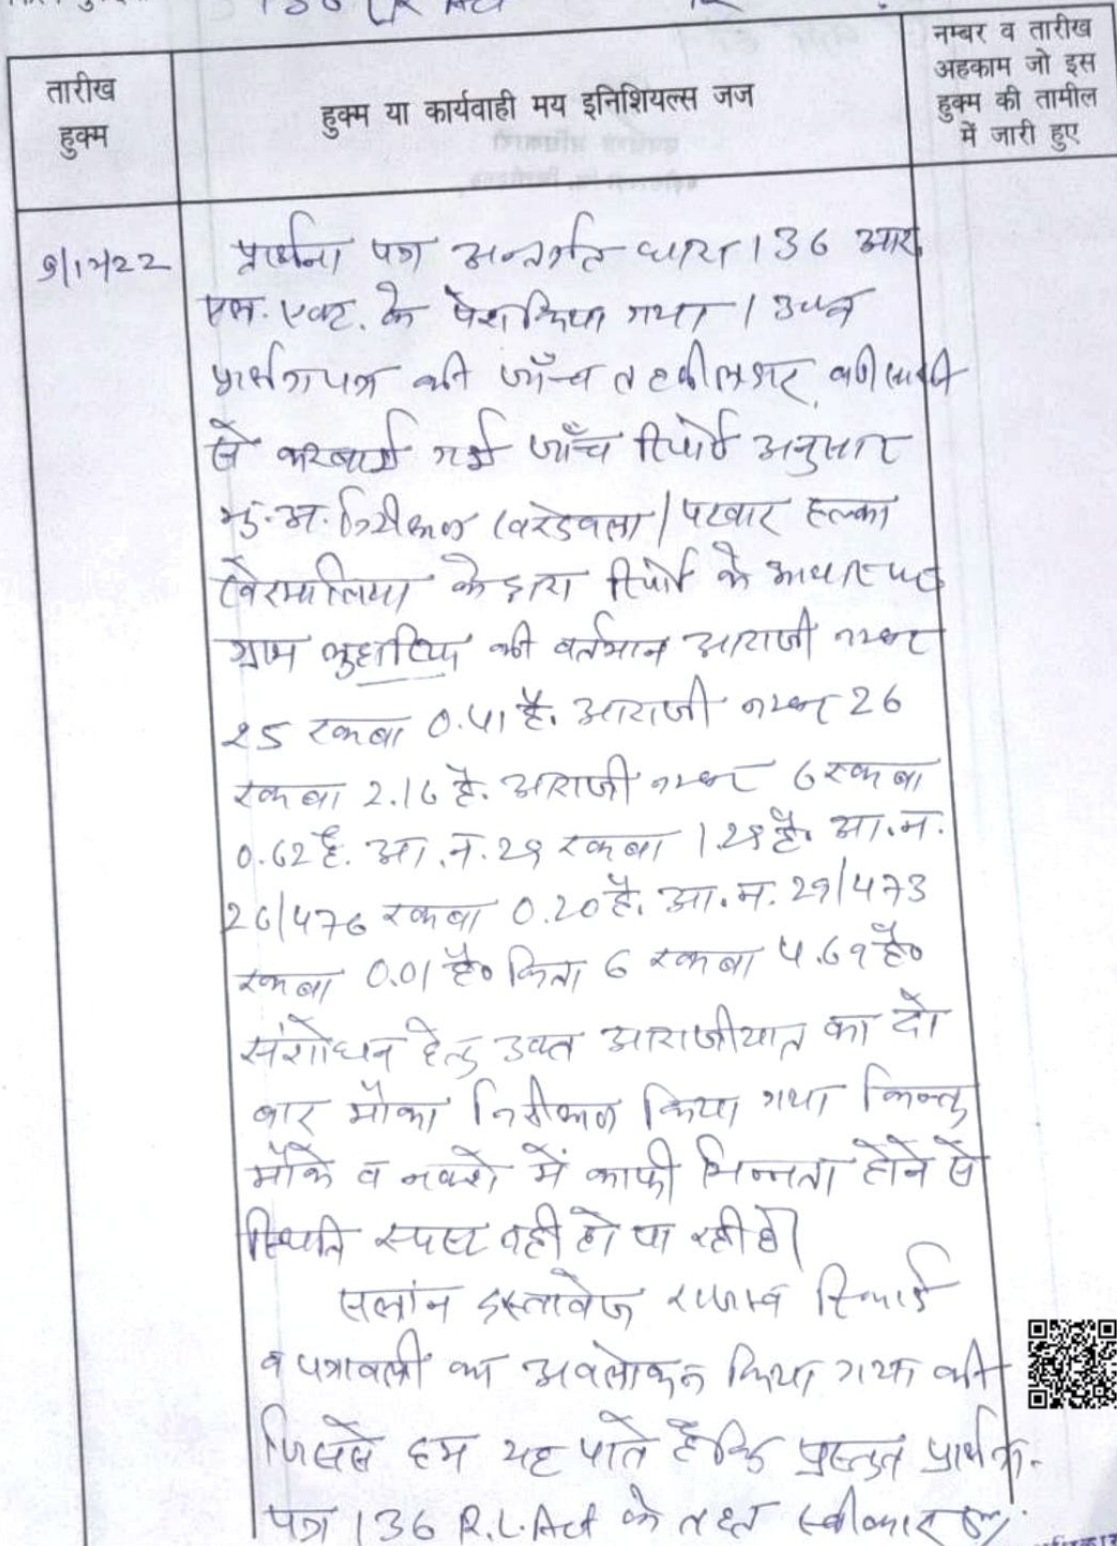 136 LR Act
तारीख
हुक्म
हुक्म या कार्यवाही मय इनिशियल्स जज
नम्बर व तारीख
अहकाम जो इस
हुक्म की तामील
में जारी हुए
9/12/22
प्रार्थना पत्र अन्तर्गत धारा 136 आर.
एल. एक्ट. के पेश किया गया । उक्त
प्रार्थनापत्र की जाँच तहसीलदार
से करवाई गई जाँच रिपोर्ट अनुसार
भु.अ. निरीक्षक / पटवार हल्का
के द्वारा रिपोर्ट के आधार पर
ग्राम की वर्तमान आराजी नम्बर
25 रकबा 0.41 है. आराजी नम्बर 26
रकबा 2.16 है. आराजी नम्बर 6 रकबा
0.62 है. आ.न. 29 रकबा 1.29 है. आ.न.
26/476 रकबा 0.20 है. आ.न. 29/473
रकबा 0.01 है० किता 6 रकबा 4.69 है०
संशोधन हेतु उक्त आराजीयात का दो
बार मौका निरीक्षण किया गया किन्तु
मौके व नक्शे में काफी भिन्नता होने से
स्थिति स्पष्ट नही हो पा रही है।
सलंग्न दस्तावेज राजस्व रिकार्ड
व पत्रावली का अवलोकन किया गया की
जिससे हम यह पाते है कि प्रस्तुत प्रार्थना-
पत्र 136 R.L.Act के तहत स्वीकार